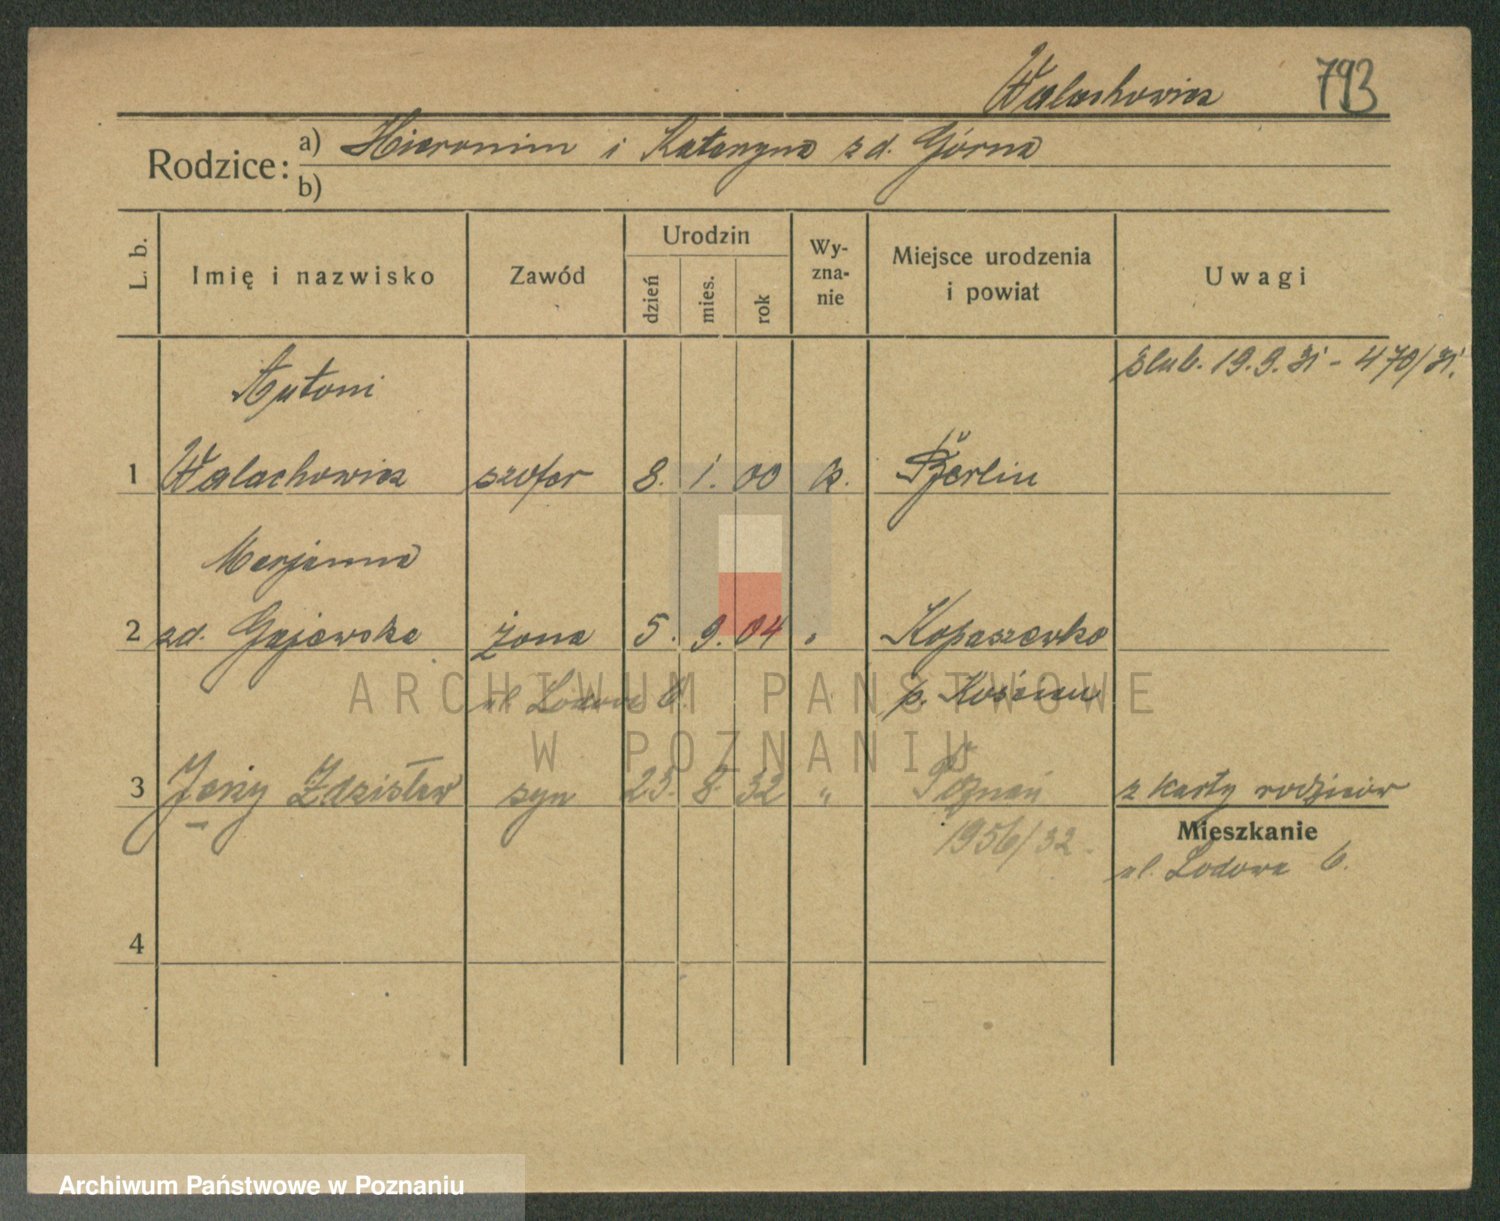 Walachowicz 793
Rodzice: a) Hieronim i Katarzyna zd. Górna
b)
L. b. Imię i nazwisko Zawód Urodzin dzień mies. rok Wy- zna- nie Miejsce urodzenia i powiat Uwagi
ślub. 19.9.31 - 470/31.
Antoni
1 Walachowicz szofer 8. 1. 00 k. Berlin
Marjanna
2 zd. Gajewska żona 5. 9. 04 " Kopaszewko
ul. Lodowa 6. p. Kościan
3 Jerzy Zdzisław syn 23. 8. 32 " Poznań z karty rodziców
1956/32.
Mieszkanie
ul. Lodowa 6.
4
ARCHIWUM PAŃSTWOWE
W POZNANIU
Archiwum Państwowe w Poznaniu